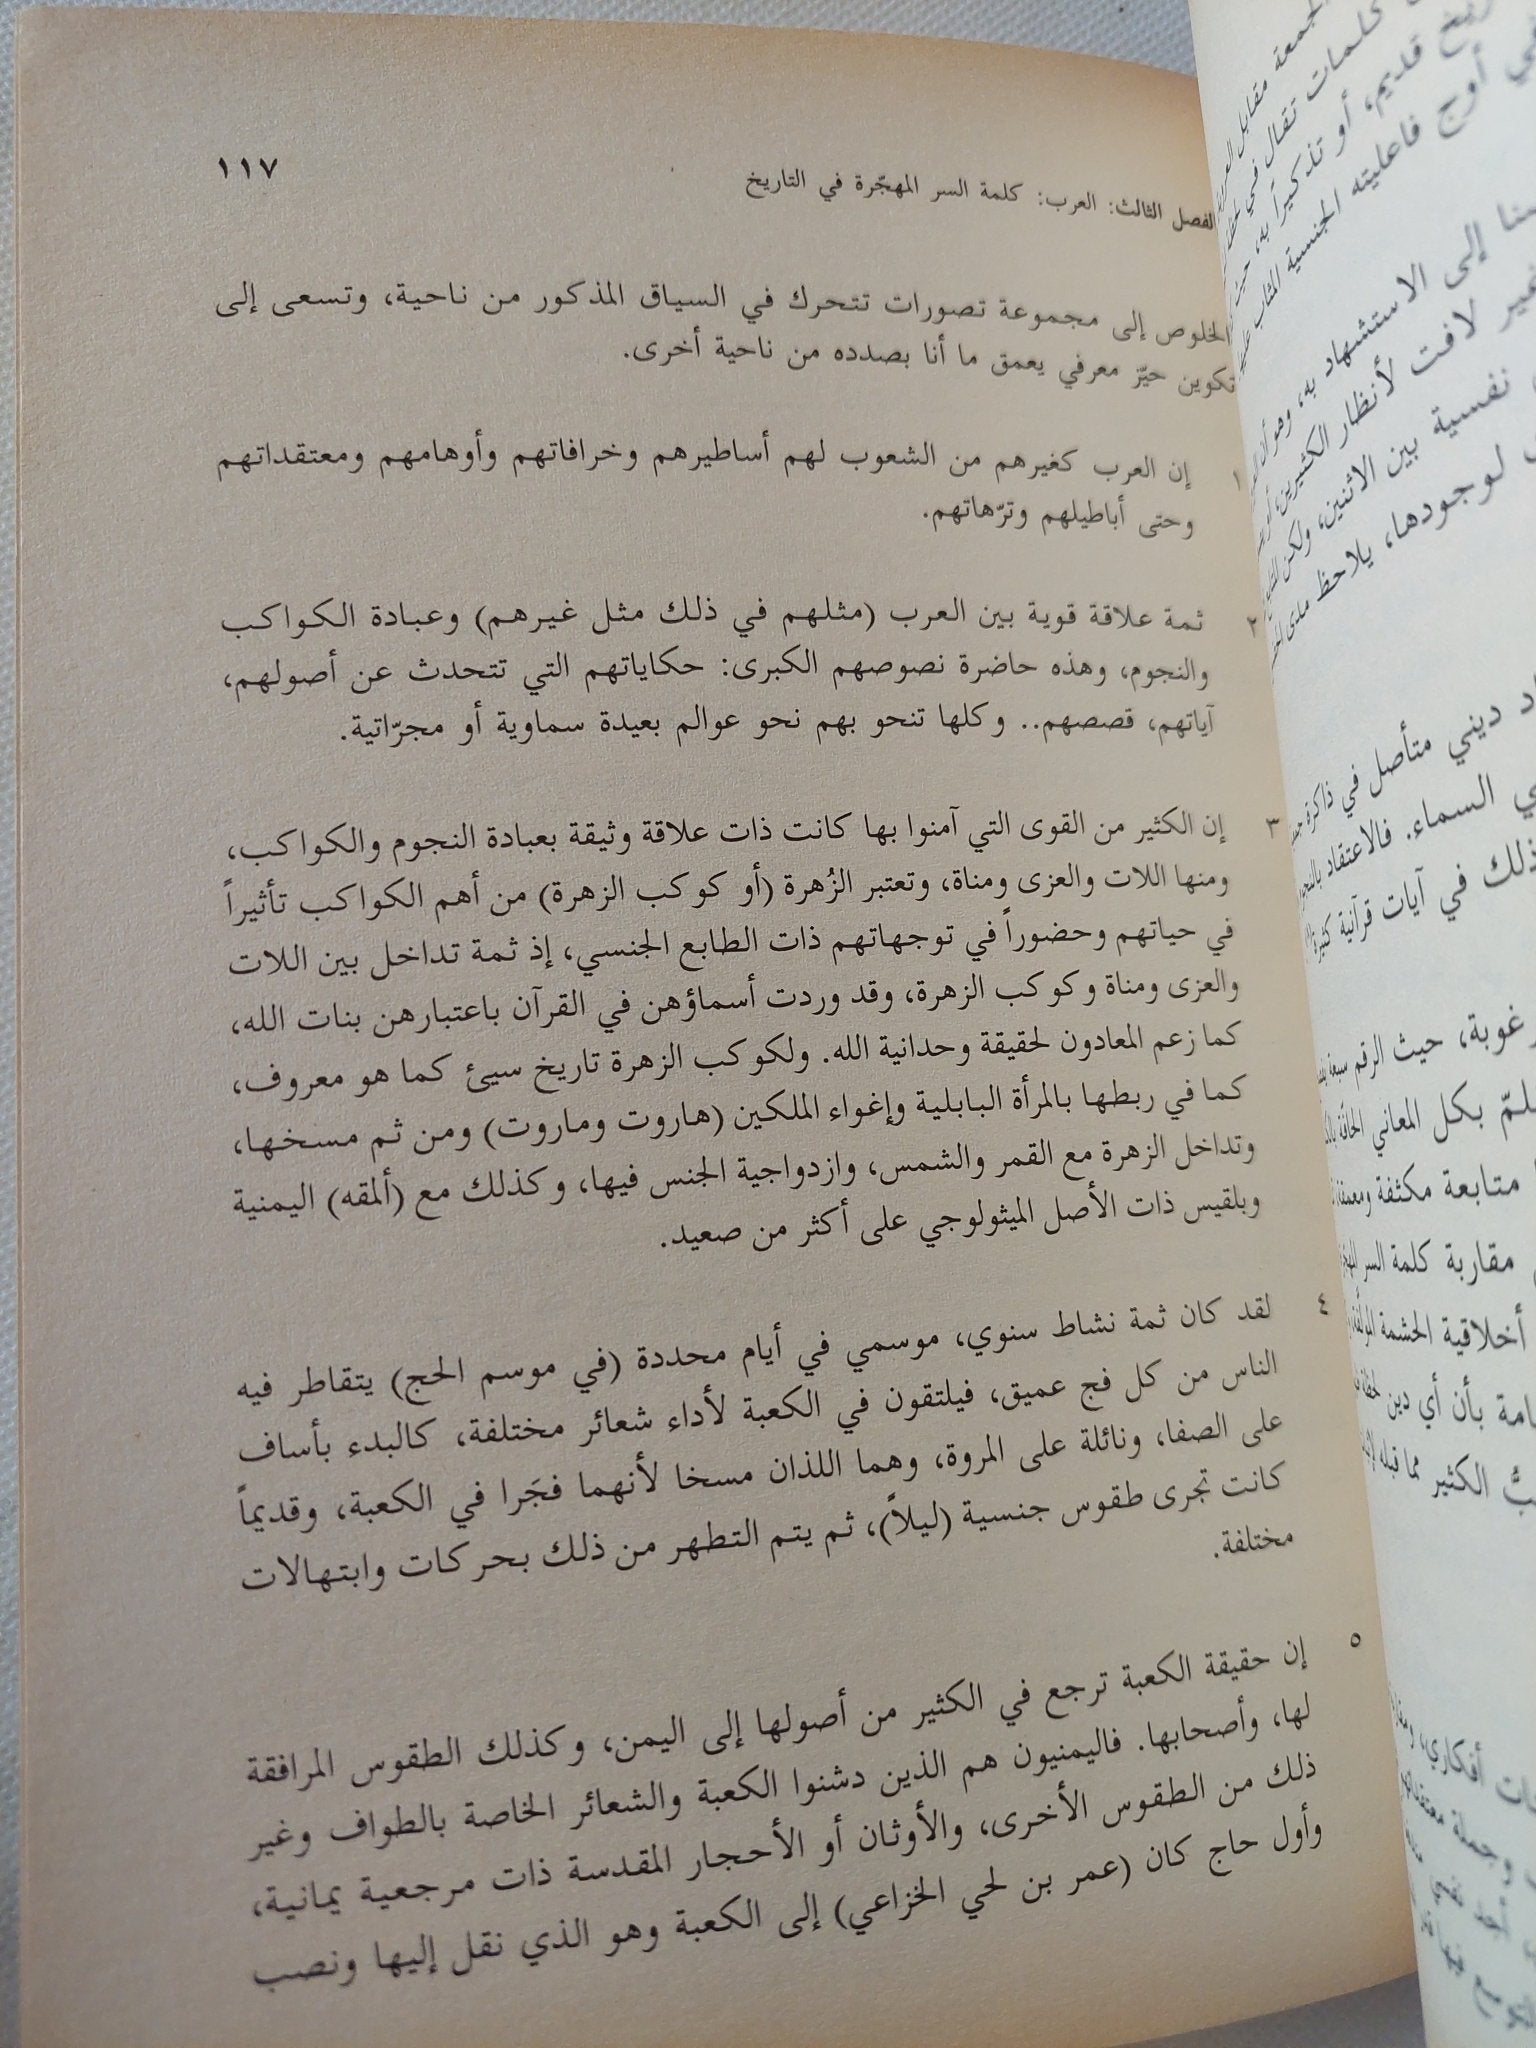 الفصل الثالث: العرب: كلمة السر المهجّرة في التاريخ
١١٧
الخلوص إلى مجموعة تصورات تتحرك في السياق المذكور من ناحية، وتسعى إلى
تكوين حيّز معرفي يعمق ما أنا بصدده من ناحية أخرى.
١ إن العرب كغيرهم من الشعوب لهم أساطيرهم وخرافاتهم وأوهامهم ومعتقداتهم
وحتى أباطيلهم وترّهاتهم.
٢ ثمة علاقة قوية بين العرب (مثلهم في ذلك مثل غيرهم) وعبادة الكواكب
والنجوم، وهذه حاضرة نصوصهم الكبرى: حكاياتهم التي تتحدث عن أصولهم،
آياتهم، قصصهم.. وكلها تنحو بهم نحو عوالم بعيدة سماوية أو مجرّاتية.
٣ إن الكثير من القوى التي آمنوا بها كانت ذات علاقة وثيقة بعبادة النجوم والكواكب،
ومنها اللات والعزى ومناة، وتعتبر الزُهرة (أو كوكب الزهرة) من أهم الكواكب تأثيراً
في حياتهم وحضوراً في توجهاتهم ذات الطابع الجنسي، إذ ثمة تداخل بين اللات
والعزى ومناة وكوكب الزهرة، وقد وردت أسماؤهن في القرآن باعتبارهن بنات الله،
كما زعم المعادون لحقيقة وحدانية الله. ولكوكب الزهرة تاريخ سيئ كما هو معروف،
كما في ربطها بالمرأة البابلية وإغواء الملكين (هاروت وماروت) ومن ثم مسخها،
وتداخل الزهرة مع القمر والشمس، وازدواجية الجنس فيها، وكذلك مع (ألمقه) اليمنية
وبلقيس ذات الأصل الميثولوجي على أكثر من صعيد.
٤ لقد كان ثمة نشاط سنوي، موسمي في أيام محددة (في موسم الحج) يتقاطر فيه
الناس من كل فج عميق، فيلتقون في الكعبة لأداء شعائر مختلفة، كالبدء بأساف
على الصفا، ونائلة على المروة، وهما اللذان مسخا لأنهما فجَرا في الكعبة، وقديماً
كانت تجرى طقوس جنسية (ليلاً)، ثم يتم التطهر من ذلك بحركات وابتهالات
مختلفة.
٥ إن حقيقة الكعبة ترجع في الكثير من أصولها إلى اليمن، وكذلك الطقوس المرافقة
لها، وأصحابها. فاليمنيون هم الذين دشنوا الكعبة والشعائر الخاصة بالطواف وغير
ذلك من الطقوس الأخرى، والأوثان أو الأحجار المقدسة ذات مرجعية يمانية،
وأول حاج كان (عمر بن لحي الخزاعي) إلى الكعبة وهو الذي نقل إليها ونصب
الجمعة مقابل
كلمات تقال في
قديم، أو تذكيراً به، حين
أوج فاعليته الجنسية المثاب عليه
إلى الاستشهاد به، وهو أن
غير لافت لأنظار الكثيرين، أو
نفسية بين الاثنين، ولكن
لوجودها، يلاحظ مدى
ديني متأصل في ذاكرة
السماء. فالاعتقاد بالنجوم
ذلك في آيات قرآنية كثيرة
حيث الرقم سبعة
بكل المعاني الحافة
متابعة مكثفة ومعمقة
مقاربة كلمة السر
أخلاقية الحشمة
بأن أي دين
الكثير مما قبله
أفكاري،
وجملة